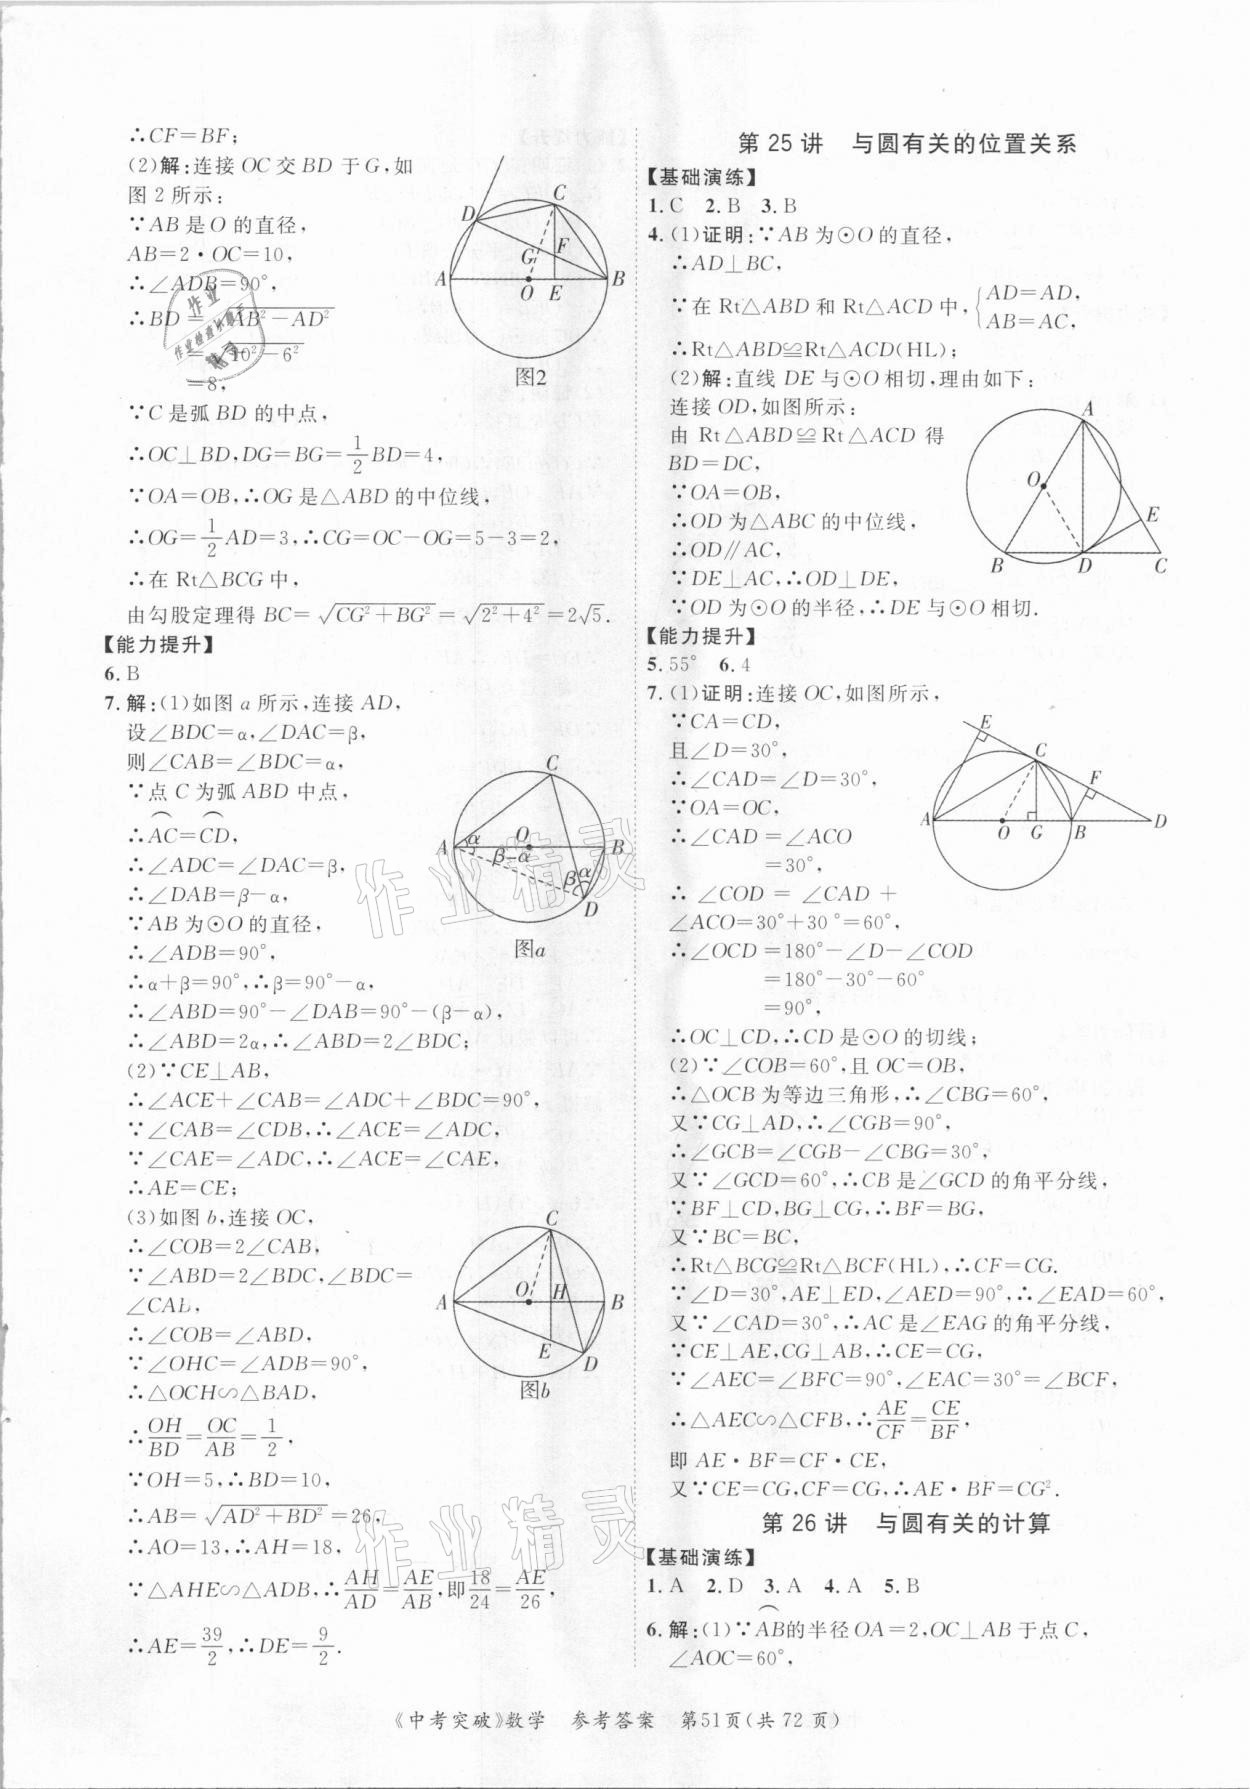 ∴CF=BF;
(2)解:连接OC交BD于G,如
图2所示:
∵AB是O的直径,
AB=2·OC=10,
∴∠ADB=90°,
∴BD=√(AB²-AD²)
=√(10²-6²)
=8,
∵C是弧BD的中点,
∴OC⊥BD,DG=BG=1/2BD=4,
∵OA=OB,∴OG是△ABD的中位线,
∴OG=1/2AD=3,∴CG=OC-OG=5-3=2,
∴在Rt△BCG中,
由勾股定理得BC=√(CG²+BG²)=√(2²+4²)=2√5.
D C F G A O E B
图2
【能力提升】
6.B
7.解:(1)如图a所示,连接AD,
设∠BDC=α,∠DAC=β,
则∠CAB=∠BDC=α,
∵点C为弧ABD中点,
∴⌒AC=⌒CD,
∴∠ADC=∠DAC=β,
∴∠DAB=β-α,
∵AB为⊙O的直径,
∴∠ADB=90°,
∴α+β=90°,∴β=90°-α,
∴∠ABD=90°-∠DAB=90°-(β-α),
∴∠ABD=2α,∴∠ABD=2∠BDC;
C A α O B β-α β α D
图a
(2)∵CE⊥AB,
∴∠ACE+∠CAB=∠ADC+∠BDC=90°,
∵∠CAB=∠CDB,∴∠ACE=∠ADC,
∵∠CAE=∠ADC,∴∠ACE=∠CAE,
∴AE=CE;
(3)如图b,连接OC,
∴∠COB=2∠CAB,
∵∠ABD=2∠BDC,∠BDC=
∠CAB,
∴∠COB=∠ABD,
∵∠OHC=∠ADB=90°,
∴△OCH∽△BAD,
∴OH/BD=OC/AB=1/2,
∵OH=5,∴BD=10,
∴AB=√(AD²+BD²)=26,
∴AO=13,∴AH=18,
∵△AHE∽△ADB,∴AH/AD=AE/AB,即18/24=AE/26,
∴AE=39/2,∴DE=9/2.
C A O H B E D
图b
第25讲 与圆有关的位置关系
【基础演练】
1.C 2.B 3.B
4.(1)证明:∵AB为⊙O的直径,
∴AD⊥BC,
∵在Rt△ABD和Rt△ACD中,{AD=AD,
AB=AC,
∴Rt△ABD≌Rt△ACD(HL);
(2)解:直线DE与⊙O相切,理由如下:
连接OD,如图所示:
由Rt△ABD≌Rt△ACD得
BD=DC,
∵OA=OB,
∴OD为△ABC的中位线,
∴OD∥AC,
∵DE⊥AC,∴OD⊥DE,
∵OD为⊙O的半径,∴DE与⊙O相切.
A O E B D C
【能力提升】
5.55° 6.4
7.(1)证明:连接OC,如图所示,
∵CA=CD,
且∠D=30°,
∴∠CAD=∠D=30°,
∵OA=OC,
∴∠CAD=∠ACO
=30°,
∴∠COD=∠CAD+
∠ACO=30°+30°=60°,
∴∠OCD=180°-∠D-∠COD
=180°-30°-60°
=90°,
∴OC⊥CD,∴CD是⊙O的切线;
E C F A O G B D
(2)∵∠COB=60°,且OC=OB,
∴△OCB为等边三角形,∴∠CBG=60°,
又∵CG⊥AD,∴∠CGB=90°,
∴∠GCB=∠CGB-∠CBG=30°,
又∵∠GCD=60°,∴CB是∠GCD的角平分线,
∵BF⊥CD,BG⊥CG,∴BF=BG,
又∵BC=BC,
∴Rt△BCG≌Rt△BCF(HL),∴CF=CG.
∵∠D=30°,AE⊥ED,∠AED=90°,∴∠EAD=60°,
又∵∠CAD=30°,∴AC是∠EAG的角平分线,
∵CE⊥AE,CG⊥AB,∴CE=CG,
∵∠AEC=∠BFC=90°,∠EAC=30°=∠BCF,
∴△AEC∽△CFB,∴AE/CF=CE/BF,
即AE·BF=CF·CE,
又∵CE=CG,CF=CG,∴AE·BF=CG².
第26讲 与圆有关的计算
【基础演练】
1.A 2.D 3.A 4.A 5.B
6.解:(1)∵⌒AB的半径OA=2,OC⊥AB于点C,
∠AOC=60°,
《中考突破》数学 参考答案 第51页(共72页)
作业精灵
作业精灵